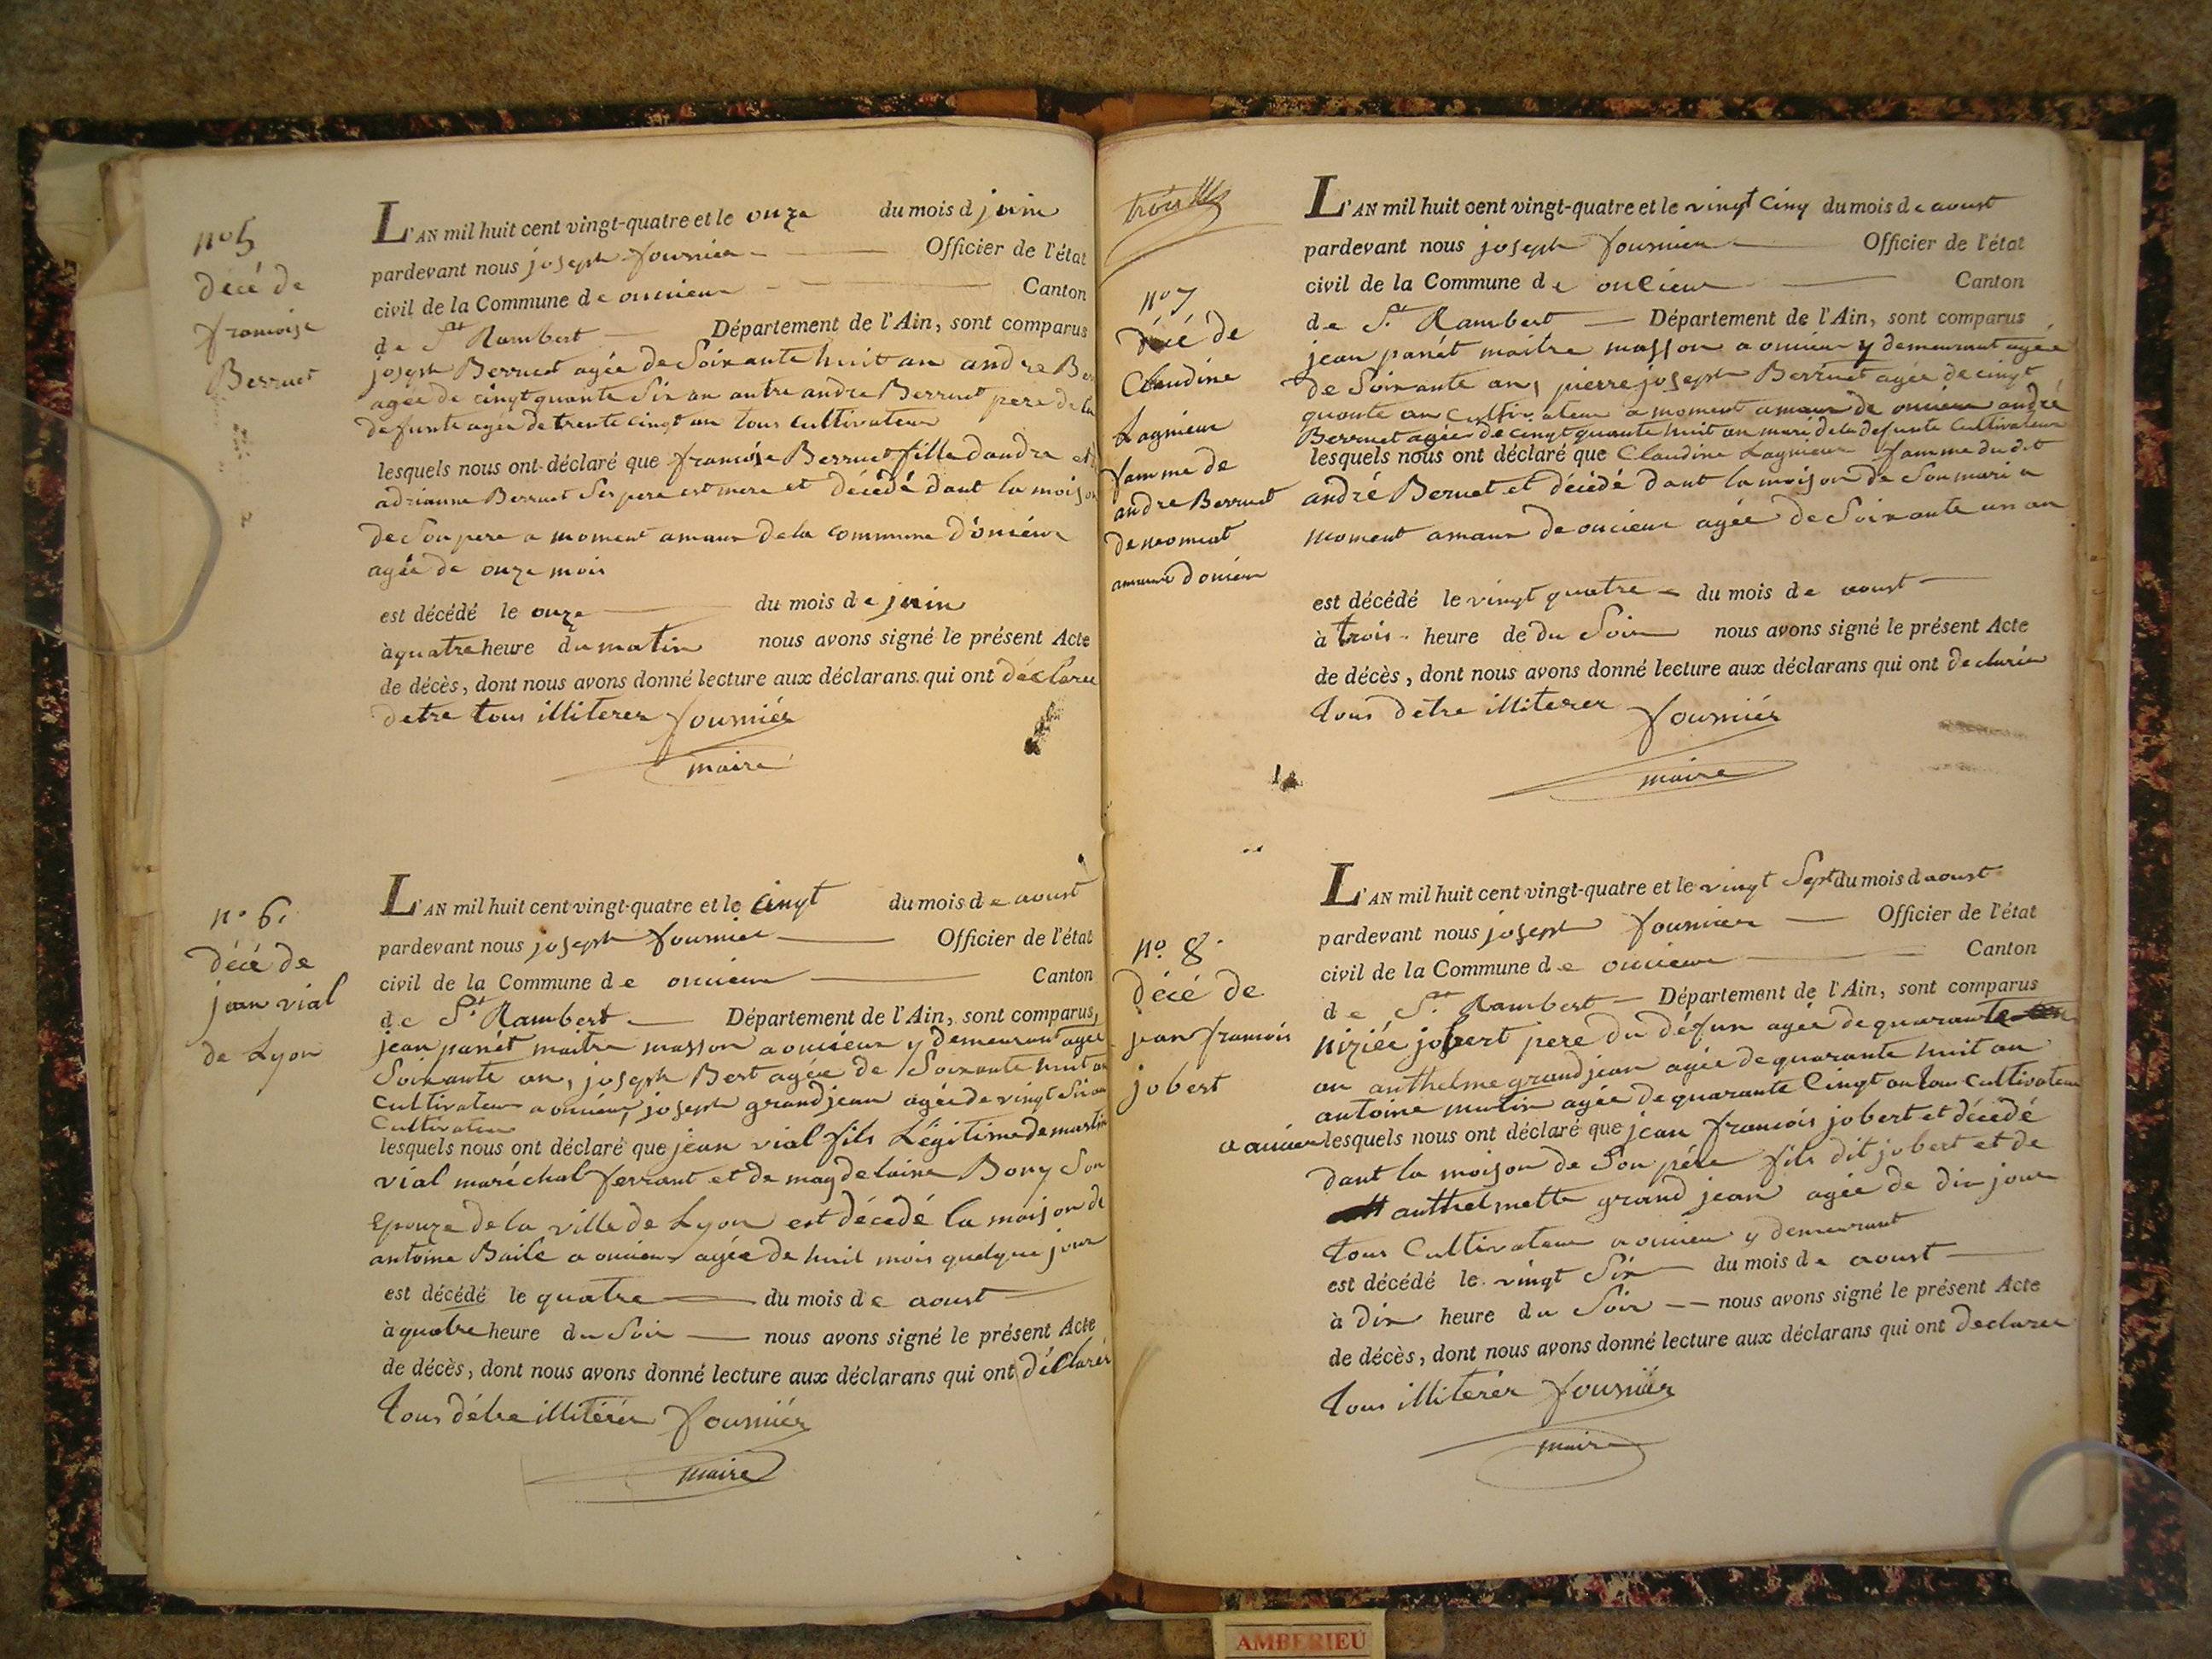 n° 5
décé de
francoise
Berruet
L'AN mil huit cent vingt-quatre et le onze du mois d juin
pardevant nous joseph fournier Officier de l'état
civil de la Commune de oncieux Canton
de St Rambert Département de l'Ain, sont comparus
joseph Berruet agée de Soixante huit an andre Ber
agée de cingtquante Six an autre andre Berruet pere de la
defunte agée de trente cingt an tous cultivateur
lesquels nous ont déclaré que francoise Berruet fille dandre et
adrianne Berruet Ses pere est mere et décédé dant la maison
de Son pere a moment amaux de la commune d'oncieux
agée de onze mois
est décédé le onze du mois de juin
à quatre heure du matin nous avons signé le présent Acte
de décès, dont nous avons donné lecture aux déclarans qui ont déclaree
detre tous illiterer fourniér
maire
n° 6.
décé de
jean vial
de Lyon
L'AN mil huit cent vingt-quatre et le cingt du mois de aoust
pardevant nous joseph fournier Officier de l'état
civil de la Commune de oncieux Canton
de St Rambert Département de l'Ain, sont comparus,
jean panét maitre masson a oncieux y demeurant agée
Soixante an, joseph Bert agée de Soixante huit an
Cultivateur a oncieux, joseph grandjean agée de vingt Six an
Cultivateur
lesquels nous ont déclaré que jean vial fils Légitime de martin
vial maréchal ferrant et de magdelaine Bony Son
Epouze de la ville de Lyon est décédé la maison de
antoine Baile a oncieux agée de huit mois quelque jour
est décédé le quatre du mois de aoust
à quatre heure du Soir nous avons signé le présent Acte
de décès, dont nous avons donné lecture aux déclarans qui ont déclarér
tous détre illitérér fourniér
maire
n° 7
décé de
Claudine
Lagnieux
famme de
andre Berruet
de moment
amaux doncieux
L'AN mil huit cent vingt-quatre et le vingt cinq du mois de aoust
pardevant nous joseph fournier Officier de l'état
civil de la Commune de oncieux Canton
de St Rambert Département de l'Ain, sont comparus
jean panét maitre masson a oncieux y demeurant agée
de Soixante an, pierre joseph Berruet agée de cingt
quante an cultivateur a moment amaux de oncieux andré
Berruet agée de cingtquante huit an mari de la defunte Cultivateur
lesquels nous ont déclaré que Claudine Lagnieux famme du dit
andré Berruet et décédé dant la maison de Son mari a
moment amaux de oncieux agée de Soixante un an
est décédé le vingt quatre du mois de aoust
à trois heure de du Soir nous avons signé le présent Acte
de décès, dont nous avons donné lecture aux déclarans qui ont declarée
tous detre illiterer fourniér
maire
n° 8
décé de
jean francois
jobert
L'AN mil huit cent vingt-quatre et le vingt Sept du mois d aoust
pardevant nous joseph fournier Officier de l'état
civil de la Commune de oncieux Canton
de St Rambert Département de l'Ain, sont comparus
niziée jobert pere du défun agée de quarante
an anthelme grandjean agée de quarante huit an
antoine mutin agée de quarante Cingt an tous cultivateur
a oncieux lesquels nous ont déclaré que jean francois jobert et décédé
dant la maison de Son pére fils dit jobert et de
anthelmette grand jean agée de dix jour
tous Cultivateur a oncieux y demeurant
est décédé le vingt Six du mois de aoust
à dix heure du Soir nous avons signé le présent Acte
de décès, dont nous avons donné lecture aux déclarans qui ont declarer
tous illiterér fourniér
maire
AMBERIEU